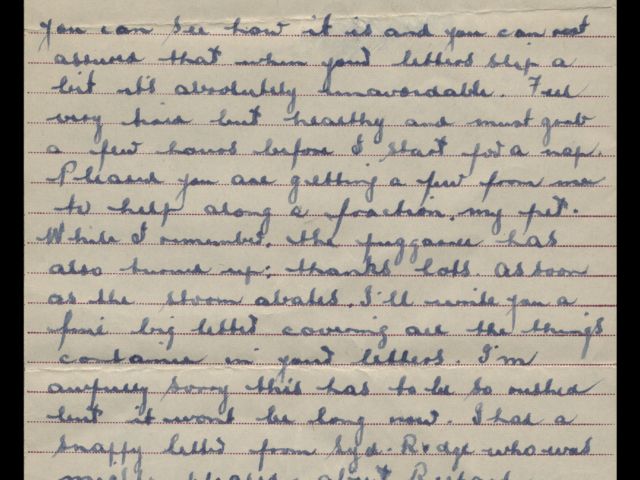 you can see how it is and you can rest
assured that when your letters slip a
bit it's absolutely unavoidable. Feel
very tired but healthy and must grab
a few hours before I start for a nap.
Pleased you are getting a few from me
to help along a fraction, my pet.
While I remember, the puggaree has
also turned up; thanks lots. As soon
as the storm abates, I'll write you a
fine big letter covering all the things
contained in your letters. I'm
awfully sorry this has to be so rushed
but it wont be long now. I had a
snappy letter from Syd. Rodge who was
about